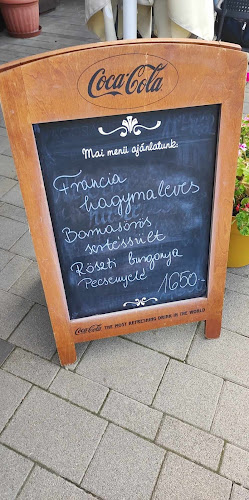 Coca-Cola
Mai menü ajánlatunk:
Francia
hagymaleves
Bamasörös
sertéssült
Röszti burgonya
Pecsenyelé 1650.-
Coca-Cola THE MOST REFRESHING DRINK IN THE WORLD